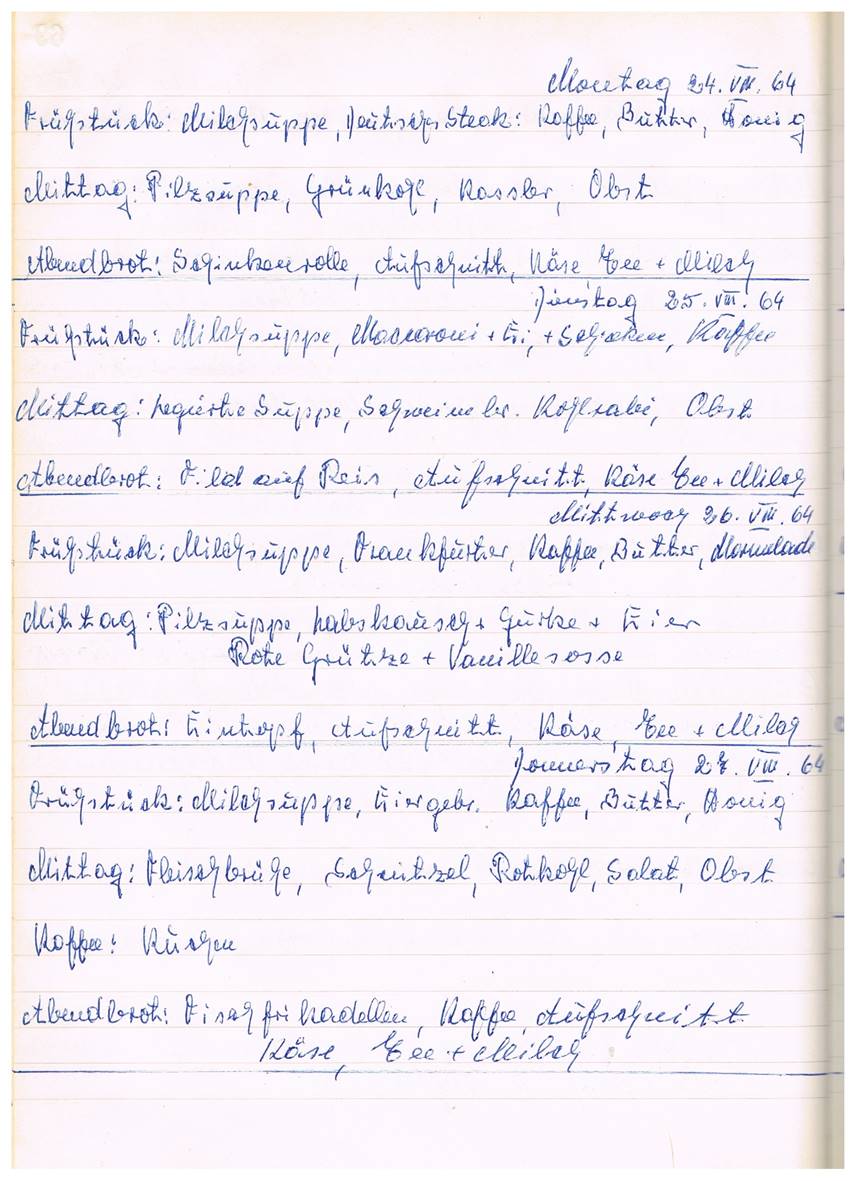 Montag 24. VIII. 64
Frühstück: Milchsuppe, Deutsches Steak: Kaffee, Butter, Honig
Mittag: Pilzsuppe, Grünkohl, Kassler, Obst
Abendbrot: Schinkenrolle, Aufschnitt, Käse Tee + Milch
Dienstag 25. VIII. 64
Frühstück: Milchsuppe, Maccaroni + Ei, + Schinken, Kaffee
Mittag: Legierte Suppe, Schweinebr. Kohlrabi, Obst
Abendbrot: auf Reis, Aufschnitt, Käse Tee + Milch
Mittwoch 26. VIII. 64
Frühstück: Milchsuppe, Frankfurter, Kaffee, Butter, Marmelade
Mittag: Pilzsuppe, Labskausch + Gurke + Eier
Rote Grütze + Vanillesosse
Abendbrot: Eintopf, Aufschnitt, Käse, Tee + Milch
Donnerstag 27. VIII. 64
Frühstück: Milchsuppe, Eier gebr. Kaffee, Butter, Honig
Mittag: Fleischbrühe, Schnitzel, Rotkohl, Salat, Obst
Kaffee: Kuchen
Abendbrot: Fischfrikadellen, Kaffee, Aufschnitt
Käse, Tee + Milch